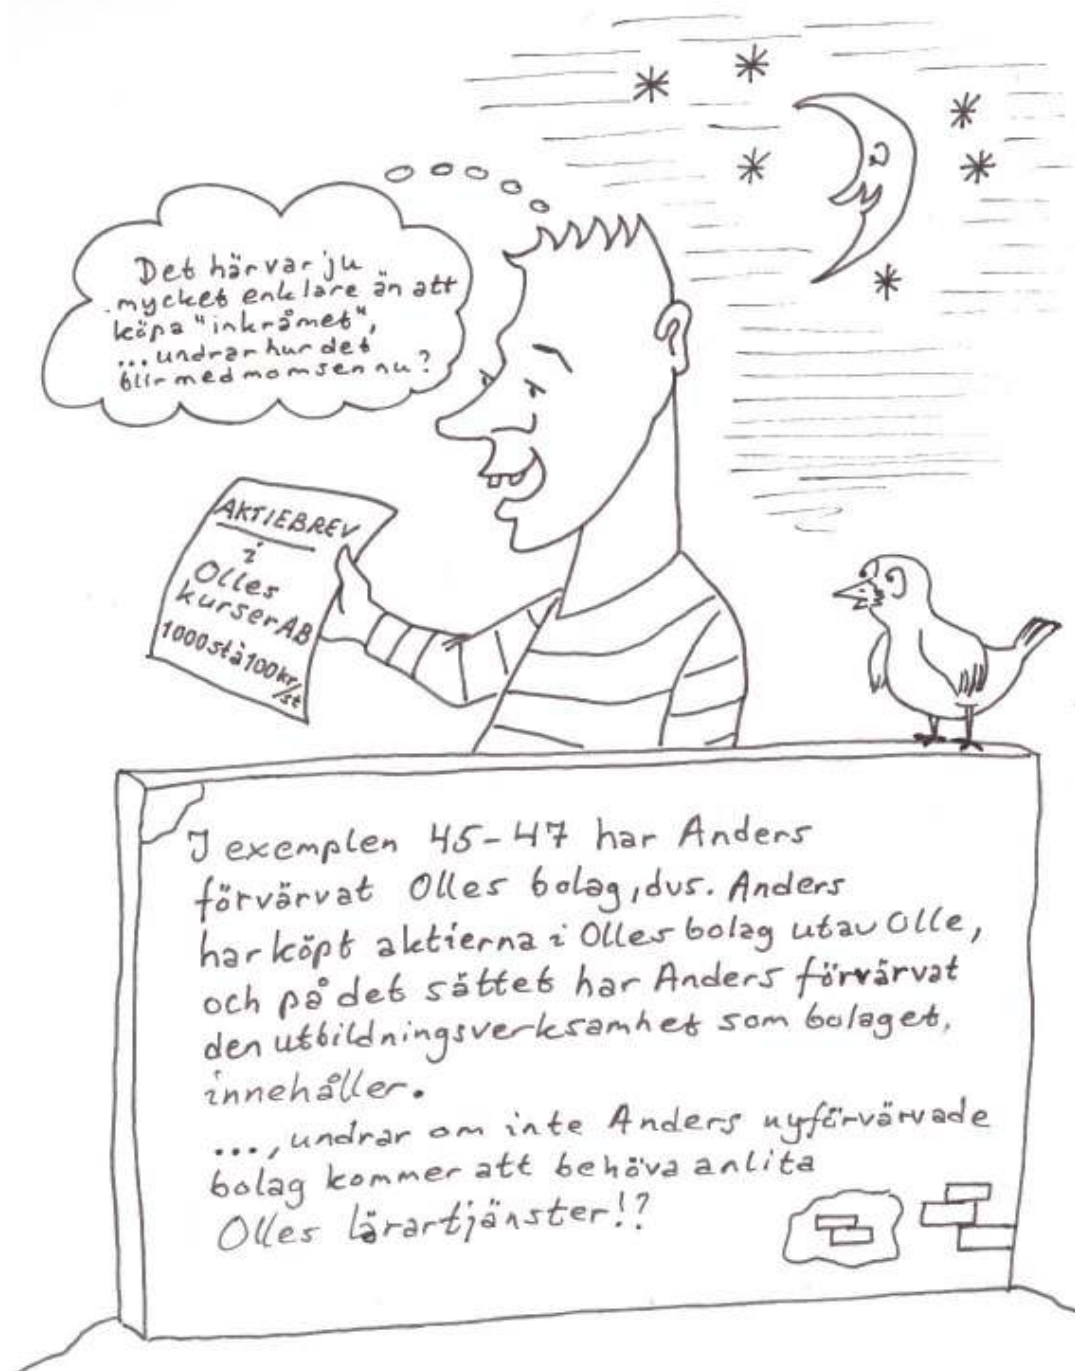 Det här var ju
mycket enklare än att
köpa "inkråmet",
...undrar hur det
blir med momsen nu?
AKTIEBREV
i
Olles
kurser AB
1000 st à 100 kr/st
I exemplen 45-47 har Anders
förvärvat Olles bolag, dvs. Anders
har köpt aktierna i Olles bolag utav Olle,
och på det sättet har Anders förvärvat
den utbildningsverksamhet som bolaget,
innehåller.
..., undrar om inte Anders nyförvärvade
bolag kommer att behöva anlita
Olles lärartjänster!?